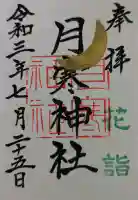 奉拝
花詣
月寒神社
令和三年七月二十五日